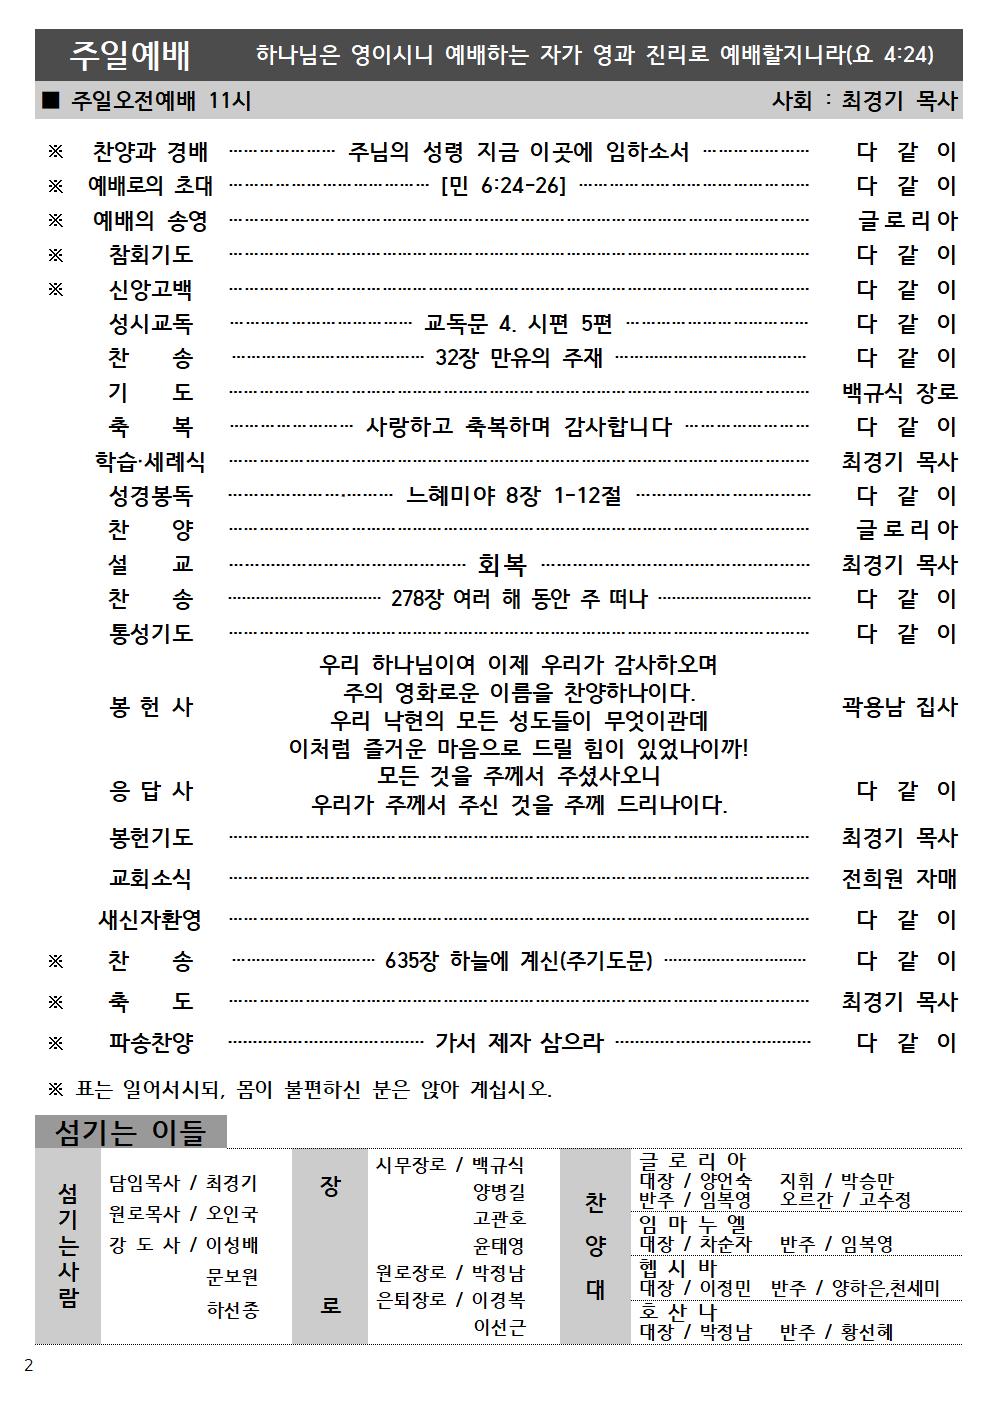 주일예배 하나님은 영이시니 예배하는 자가 영과 진리로 예배할지니라(요 4:24)
■ 주일오전예배 11시 사회 : 최경기 목사
※ 찬양과 경배 ………………… 주님의 성령 지금 이곳에 임하소서 ………………… 다 같 이
※ 예배로의 초대 ………………………………… [민 6:24-26] ……………………………………… 다 같 이
※ 예배의 송영 …………………………………………………………………………………………………… 글로리아
※ 참회기도 …………………………………………………………………………………………………… 다 같 이
※ 신앙고백 …………………………………………………………………………………………………… 다 같 이
성시교독 ……………………………… 교독문 4. 시편 5편 ……………………………… 다 같 이
찬 송 ………………………………… 32장 만유의 주재 ………………………………… 다 같 이
기 도 …………………………………………………………………………………………………… 백규식 장로
축 복 …………………… 사랑하고 축복하며 감사합니다 …………………… 다 같 이
학습·세례식 …………………………………………………………………………………………………… 최경기 목사
성경봉독 …………………………… 느헤미야 8장 1-12절 …………………………… 다 같 이
찬 양 …………………………………………………………………………………………………… 글로리아
설 교 ……………………………………… 회복 ……………………………………………… 최경기 목사
찬 송 …………………………… 278장 여러 해 동안 주 떠나 …………………………… 다 같 이
통성기도 …………………………………………………………………………………………………… 다 같 이
우리 하나님이여 이제 우리가 감사하오며
주의 영화로운 이름을 찬양하나이다.
봉 헌 사 곽용남 집사
우리 낙현의 모든 성도들이 무엇이관데
이처럼 즐거운 마음으로 드릴 힘이 있었나이까!
모든 것을 주께서 주셨사오니
응 답 사 다 같 이
우리가 주께서 주신 것을 주께 드리나이다.
봉헌기도 …………………………………………………………………………………………………… 최경기 목사
교회소식 …………………………………………………………………………………………………… 전희원 자매
새신자환영 …………………………………………………………………………………………………… 다 같 이
※ 찬 송 ………………………… 635장 하늘에 계신(주기도문) ………………………… 다 같 이
※ 축 도 …………………………………………………………………………………………………… 최경기 목사
※ 파송찬양 ………………………………… 가서 제자 삼으라 ………………………………… 다 같 이
※ 표는 일어서시되, 몸이 불편하신 분은 앉아 계십시오.
섬기는 이들
섬기는사람
담임목사 / 최경기
원로목사 / 오인국
강 도 사 / 이성배
문보원
하선종
장로
시무장로 / 백규식
양병길
고관호
윤태영
원로장로 / 박정남
은퇴장로 / 이경복
이선근
찬양대
글 로 리 아
대장 / 양언숙 지휘 / 박승만
반주 / 임복영 오르간 / 고수정
임 마 누 엘
대장 / 차순자 반주 / 임복영
헵 시 바
대장 / 이정민 반주 / 양하은,천세미
호 산 나
대장 / 박정남 반주 / 황선혜
2